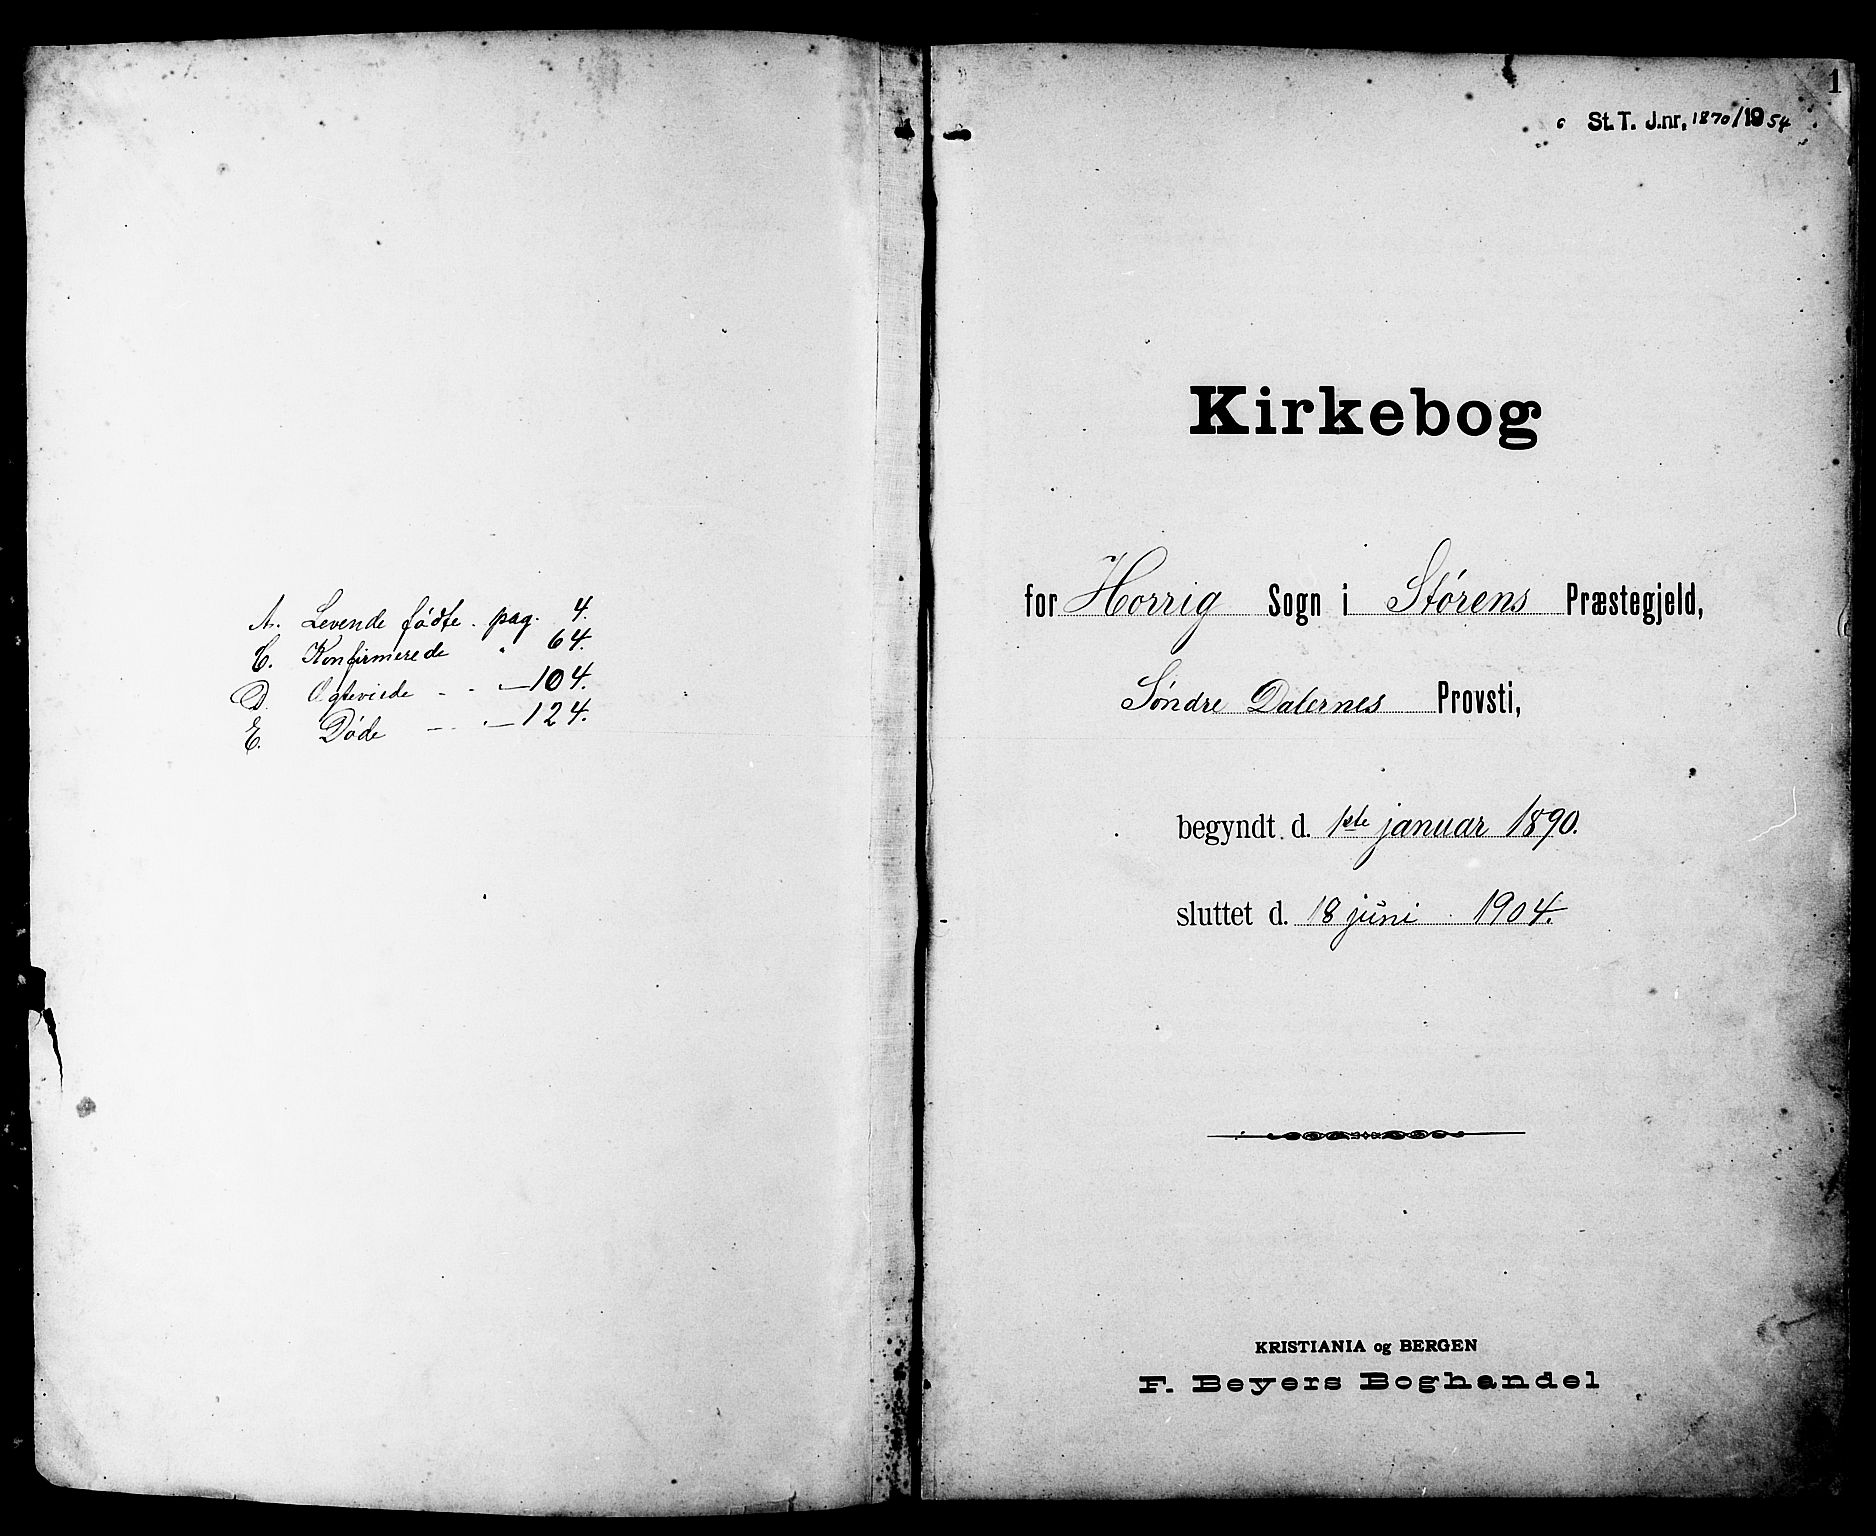 A. Levende fødte . pag. 4.
C. Konfirmerede " 64.
D. Ogteviede - - - 104.
E. Døde - - - 124.
1
St. T. J.nr. 1870/1954
Kirkebog
for Horrig Sogn i Størens Præstegjeld,
Søndre Dalernes Provsti,
begyndt d. 1ste januar 1890.
sluttet d. 18 juni 1904.
KRISTIANIA og BERGEN
F. Beyers Boghandel